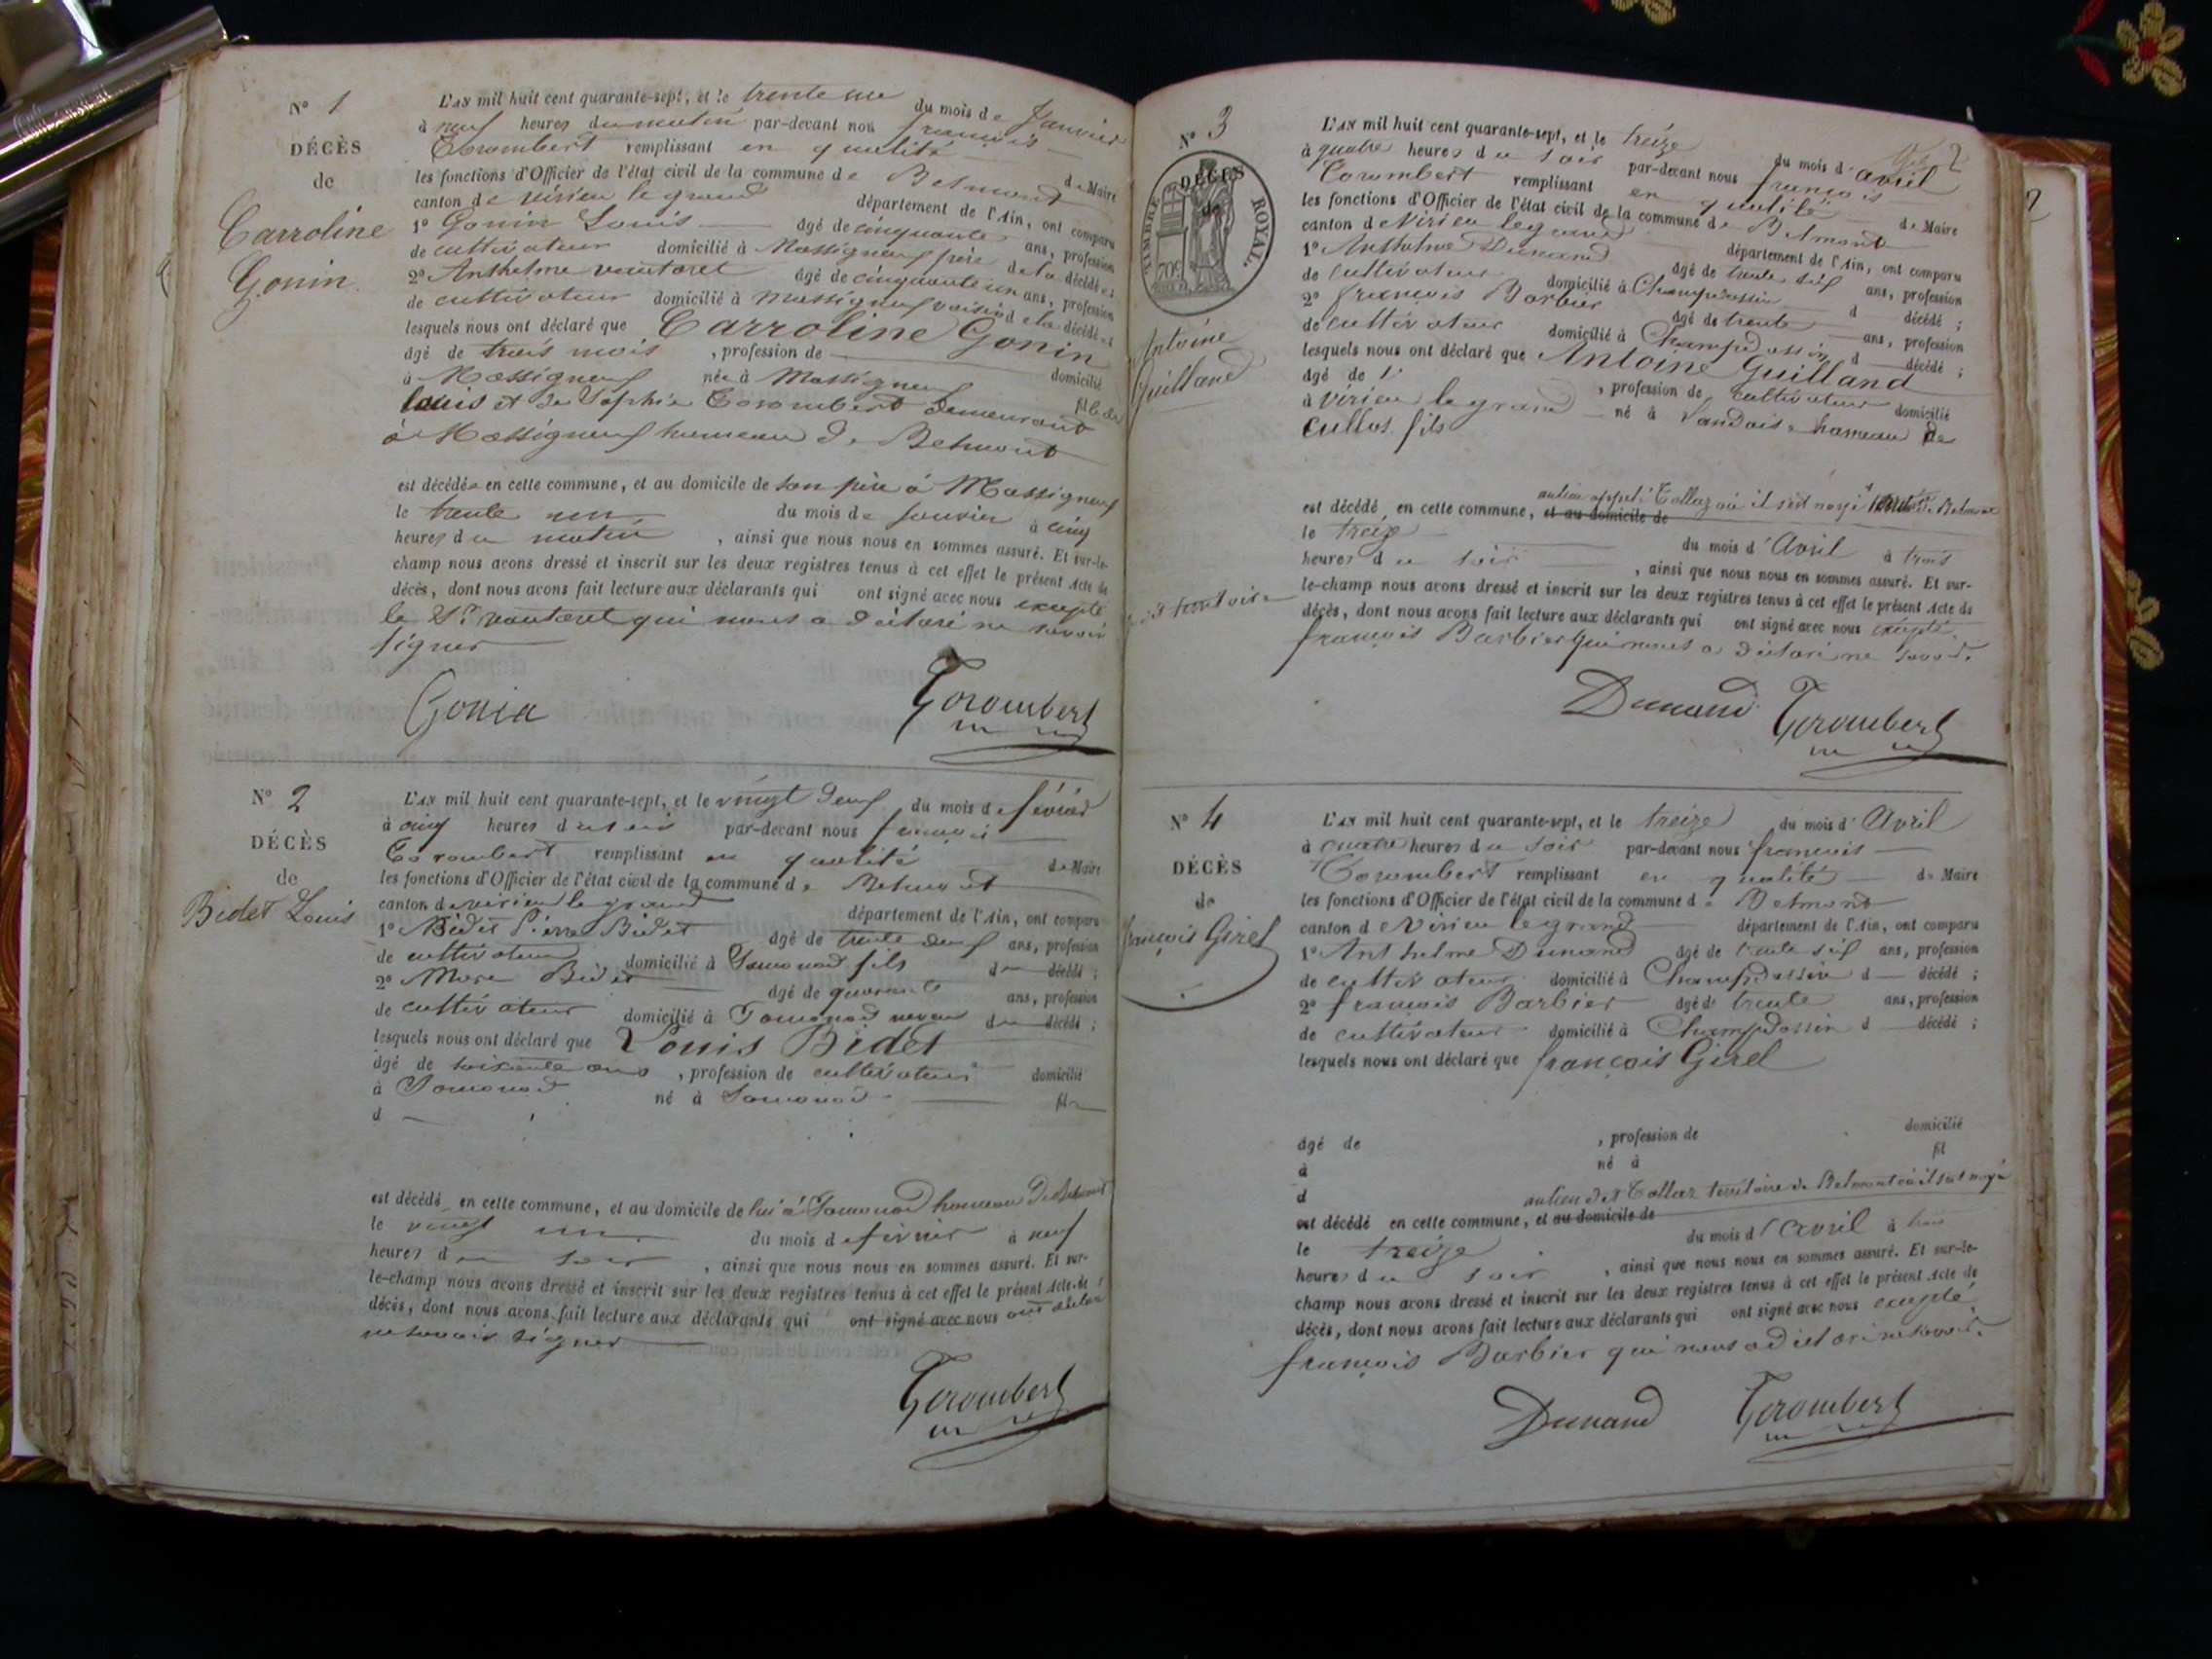 N° 1
DÉCÈS
de
Carroline
Gonin
L'AN mil huit cent quarante-sept, et le trente un du mois de Janvier
à neuf heures du matin par-devant nous françois
Gorombert remplissant en qualité de Maire
les fonctions d'Officier de l'état civil de la commune de Belmont
canton de virieu le grand département de l'Ain, ont comparu
1° Gonin Louis âgé de cinquante ans, profession
de cultivateur domicilié à Massigneuf père de la décédée;
2° Anthelme vautaret âgé de cinquante un ans, profession
de cultivateur domicilié à Massigneuf voisin de la décédée;
lesquels nous ont déclaré que Carroline Gonin
âgé de trois mois, profession de domicilié
à Massigneuf née à Massigneuf fille de
louis et de Sophie Gorombert demeurant
à Massigneuf hameau de Belmont
est décédée en cette commune, et au domicile de son père à Massigneuf
le trente un du mois de janvier à cinq
heures du matin, ainsi que nous nous en sommes assuré. Et sur-le-
champ nous avons dressé et inscrit sur les deux registres tenus à cet effet le présent Acte de
décès, dont nous avons fait lecture aux déclarants qui ont signé avec nous excepté
le Sr vautaret qui nous a déclaré ne savoir
signer
Gonin Gorombert
N° 2
DÉCÈS
de
Bidet Louis
L'AN mil huit cent quarante-sept, et le vingt deux du mois de février
à cinq heures du soir par-devant nous françois
Gorombert remplissant en qualité de Maire
les fonctions d'Officier de l'état civil de la commune de Belmont
canton de virieu le grand département de l'Ain, ont comparu
1° Bidet Pierre Bidet âgé de trente deux ans, profession
de cultivateur domicilié à Somonod fils du décédé;
2° Marc Bidet âgé de quarante ans, profession
de cultivateur domicilié à Somonod neveu du décédé;
lesquels nous ont déclaré que Louis Bidet
âgé de soixante ans, profession de cultivateur domicilié
à Somonod né à Somonod fil
d
est décédé en cette commune, et au domicile de lui à Somonod hameau de Belmont
le vingt un du mois de février à neuf
heures du soir, ainsi que nous nous en sommes assuré. Et sur-
le-champ nous avons dressé et inscrit sur les deux registres tenus à cet effet le présent Acte de
décès, dont nous avons fait lecture aux déclarants qui ont signé avec nous ont déclaré
ne savoir signer
Gorombert
2
N° 3
DÉCÈS
de
TIMBRE ROYAL.
70c
Antoine
Guilland
L'AN mil huit cent quarante-sept, et le treize du mois d'avril
à quatre heures du soir par-devant nous françois
Gorombert remplissant en qualité de Maire
les fonctions d'Officier de l'état civil de la commune de Belmont
canton de Virieu le grand département de l'Ain, ont comparu
1° Anthelme Dunand âgé de trente six ans, profession
de cultivateur domicilié à Champdossin d décédé;
2° françois Barbier âgé de trente ans, profession
de cultivateur domicilié à Champdossin d décédé;
lesquels nous ont déclaré que Antoine Guilland
âgé de, profession de cultivateur domicilié
à virieu le grand né à hameau de
Cullos fils
au lieu appelé Collaz où il s'est noyé de Belmont
est décédé en cette commune, et au domicile de
le treize du mois d'Avril à trois
heures du soir, ainsi que nous nous en sommes assuré. Et sur-
le-champ nous avons dressé et inscrit sur les deux registres tenus à cet effet le présent Acte de
décès, dont nous avons fait lecture aux déclarants qui ont signé avec nous excepté
françois Barbier qui nous a déclaré ne savoir.
Dunand Gorombert
N° 4
DÉCÈS
de
françois Girel
L'AN mil huit cent quarante-sept, et le treize du mois d'Avril
à quatre heures du soir par-devant nous françois
Gorombert remplissant en qualité de Maire
les fonctions d'Officier de l'état civil de la commune de Belmont
canton de Virieu le grand département de l'Ain, ont comparu
1° Anthelme Dunand âgé de trente six ans, profession
de cultivateur domicilié à Champdossin d décédé;
2° françois Barbier âgé de trente ans, profession
de cultivateur domicilié à Champdossin d décédé;
lesquels nous ont déclaré que françois Girel
âgé de, profession de domicilié
à né à fil
d au lieu dit Collaz territoire de Belmont où il s'est noyé
est décédé en cette commune, et au domicile de
le treize du mois d'avril à trois
heures du soir, ainsi que nous nous en sommes assuré. Et sur-le-
champ nous avons dressé et inscrit sur les deux registres tenus à cet effet le présent Acte de
décès, dont nous avons fait lecture aux déclarants qui ont signé avec nous excepté
françois Barbier qui nous a déclaré ne savoir.
Dunand Gorombert